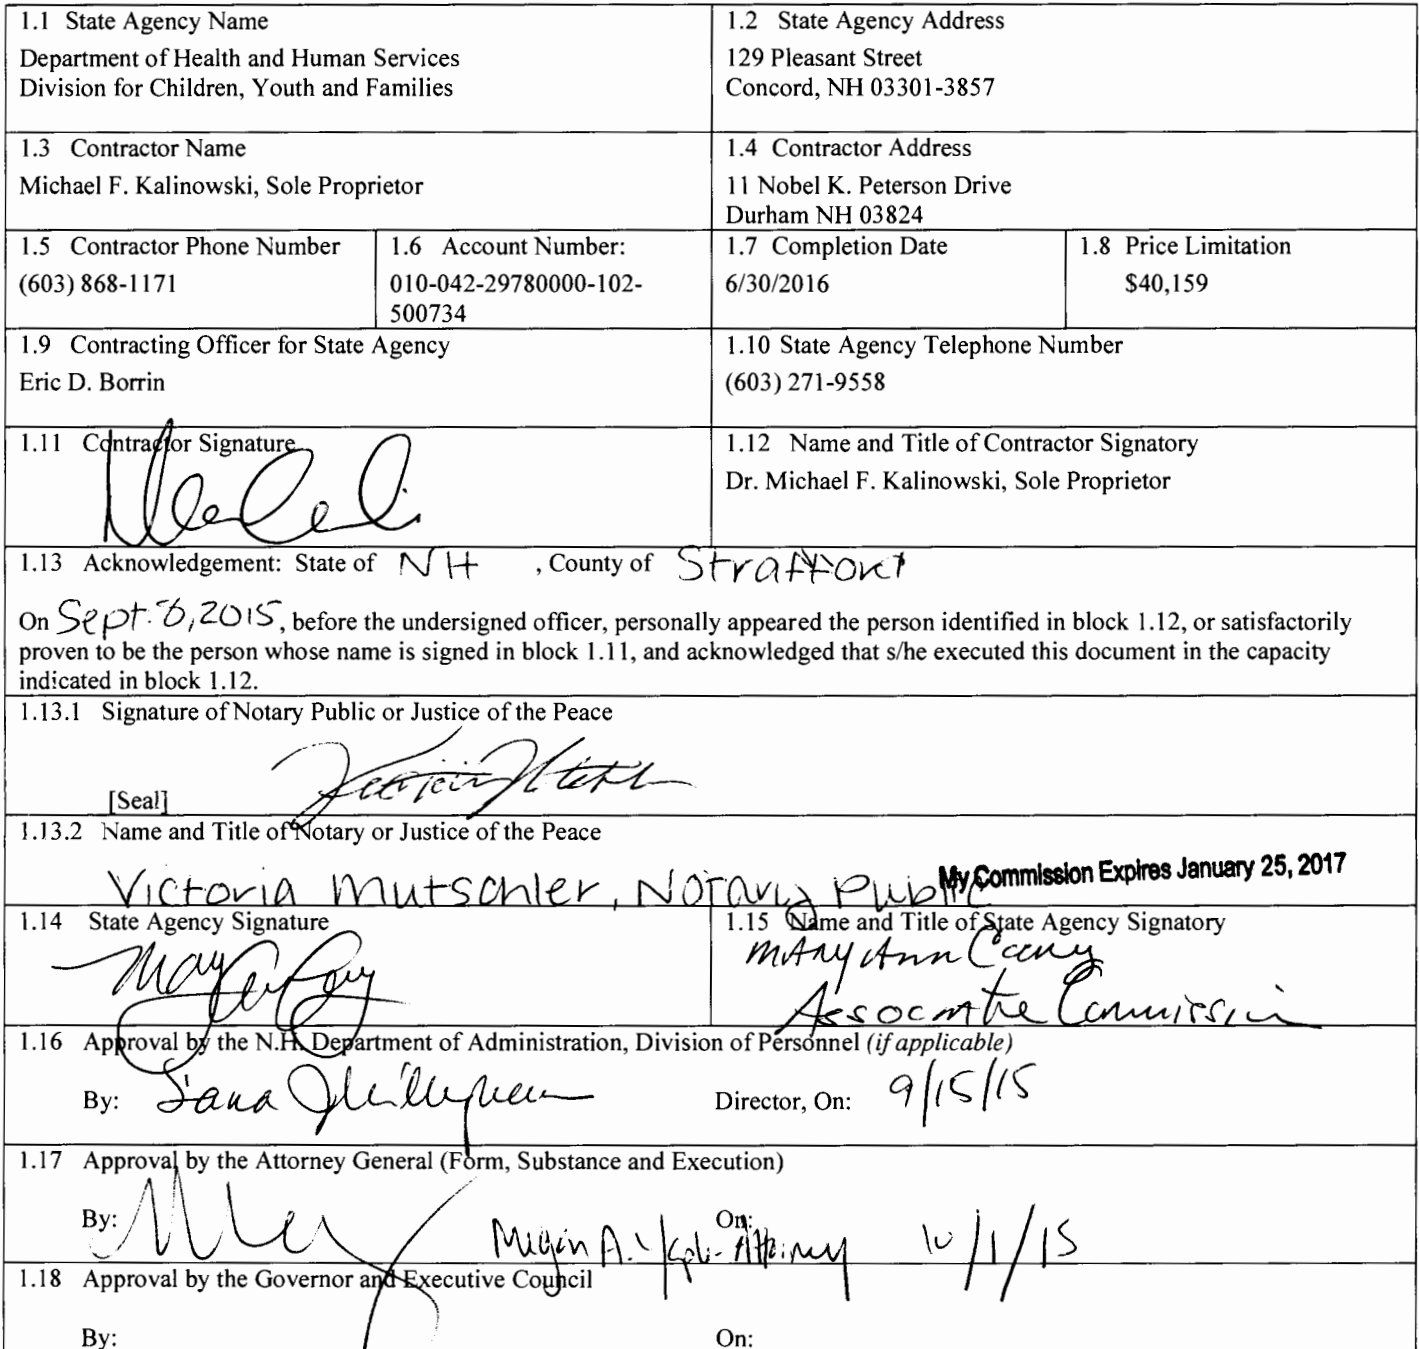 1.1 State Agency Name
Department of Health and Human Services
Division for Children, Youth and Families
1.2 State Agency Address
129 Pleasant Street
Concord, NH 03301-3857
1.3 Contractor Name
Michael F. Kalinowski, Sole Proprietor
1.4 Contractor Address
11 Nobel K. Peterson Drive
Durham NH 03824
1.5 Contractor Phone Number
(603) 868-1171
1.6 Account Number:
010-042-29780000-102-
500734
1.7 Completion Date
6/30/2016
1.8 Price Limitation
$40,159
1.9 Contracting Officer for State Agency
Eric D. Borrin
1.10 State Agency Telephone Number
(603) 271-9558
1.11 Contractor Signature
1.12 Name and Title of Contractor Signatory
Dr. Michael F. Kalinowski, Sole Proprietor
1.13 Acknowledgement: State of NH , County of Strafford
On Sept. 8, 2015, before the undersigned officer, personally appeared the person identified in block 1.12, or satisfactorily
proven to be the person whose name is signed in block 1.11, and acknowledged that s/he executed this document in the capacity
indicated in block 1.12.
1.13.1 Signature of Notary Public or Justice of the Peace
[Seal]
1.13.2 Name and Title of Notary or Justice of the Peace
Victoria Mutschler, Notary Public
My Commission Expires January 25, 2017
1.14 State Agency Signature
1.15 Name and Title of State Agency Signatory
Mary Ann Cooney
Associate Commissioner
1.16 Approval by the N.H. Department of Administration, Division of Personnel (if applicable)
By: Director, On: 9/15/15
1.17 Approval by the Attorney General (Form, Substance and Execution)
By: Megan A. - Attorney On: 10/1/15
1.18 Approval by the Governor and Executive Council
By: On: